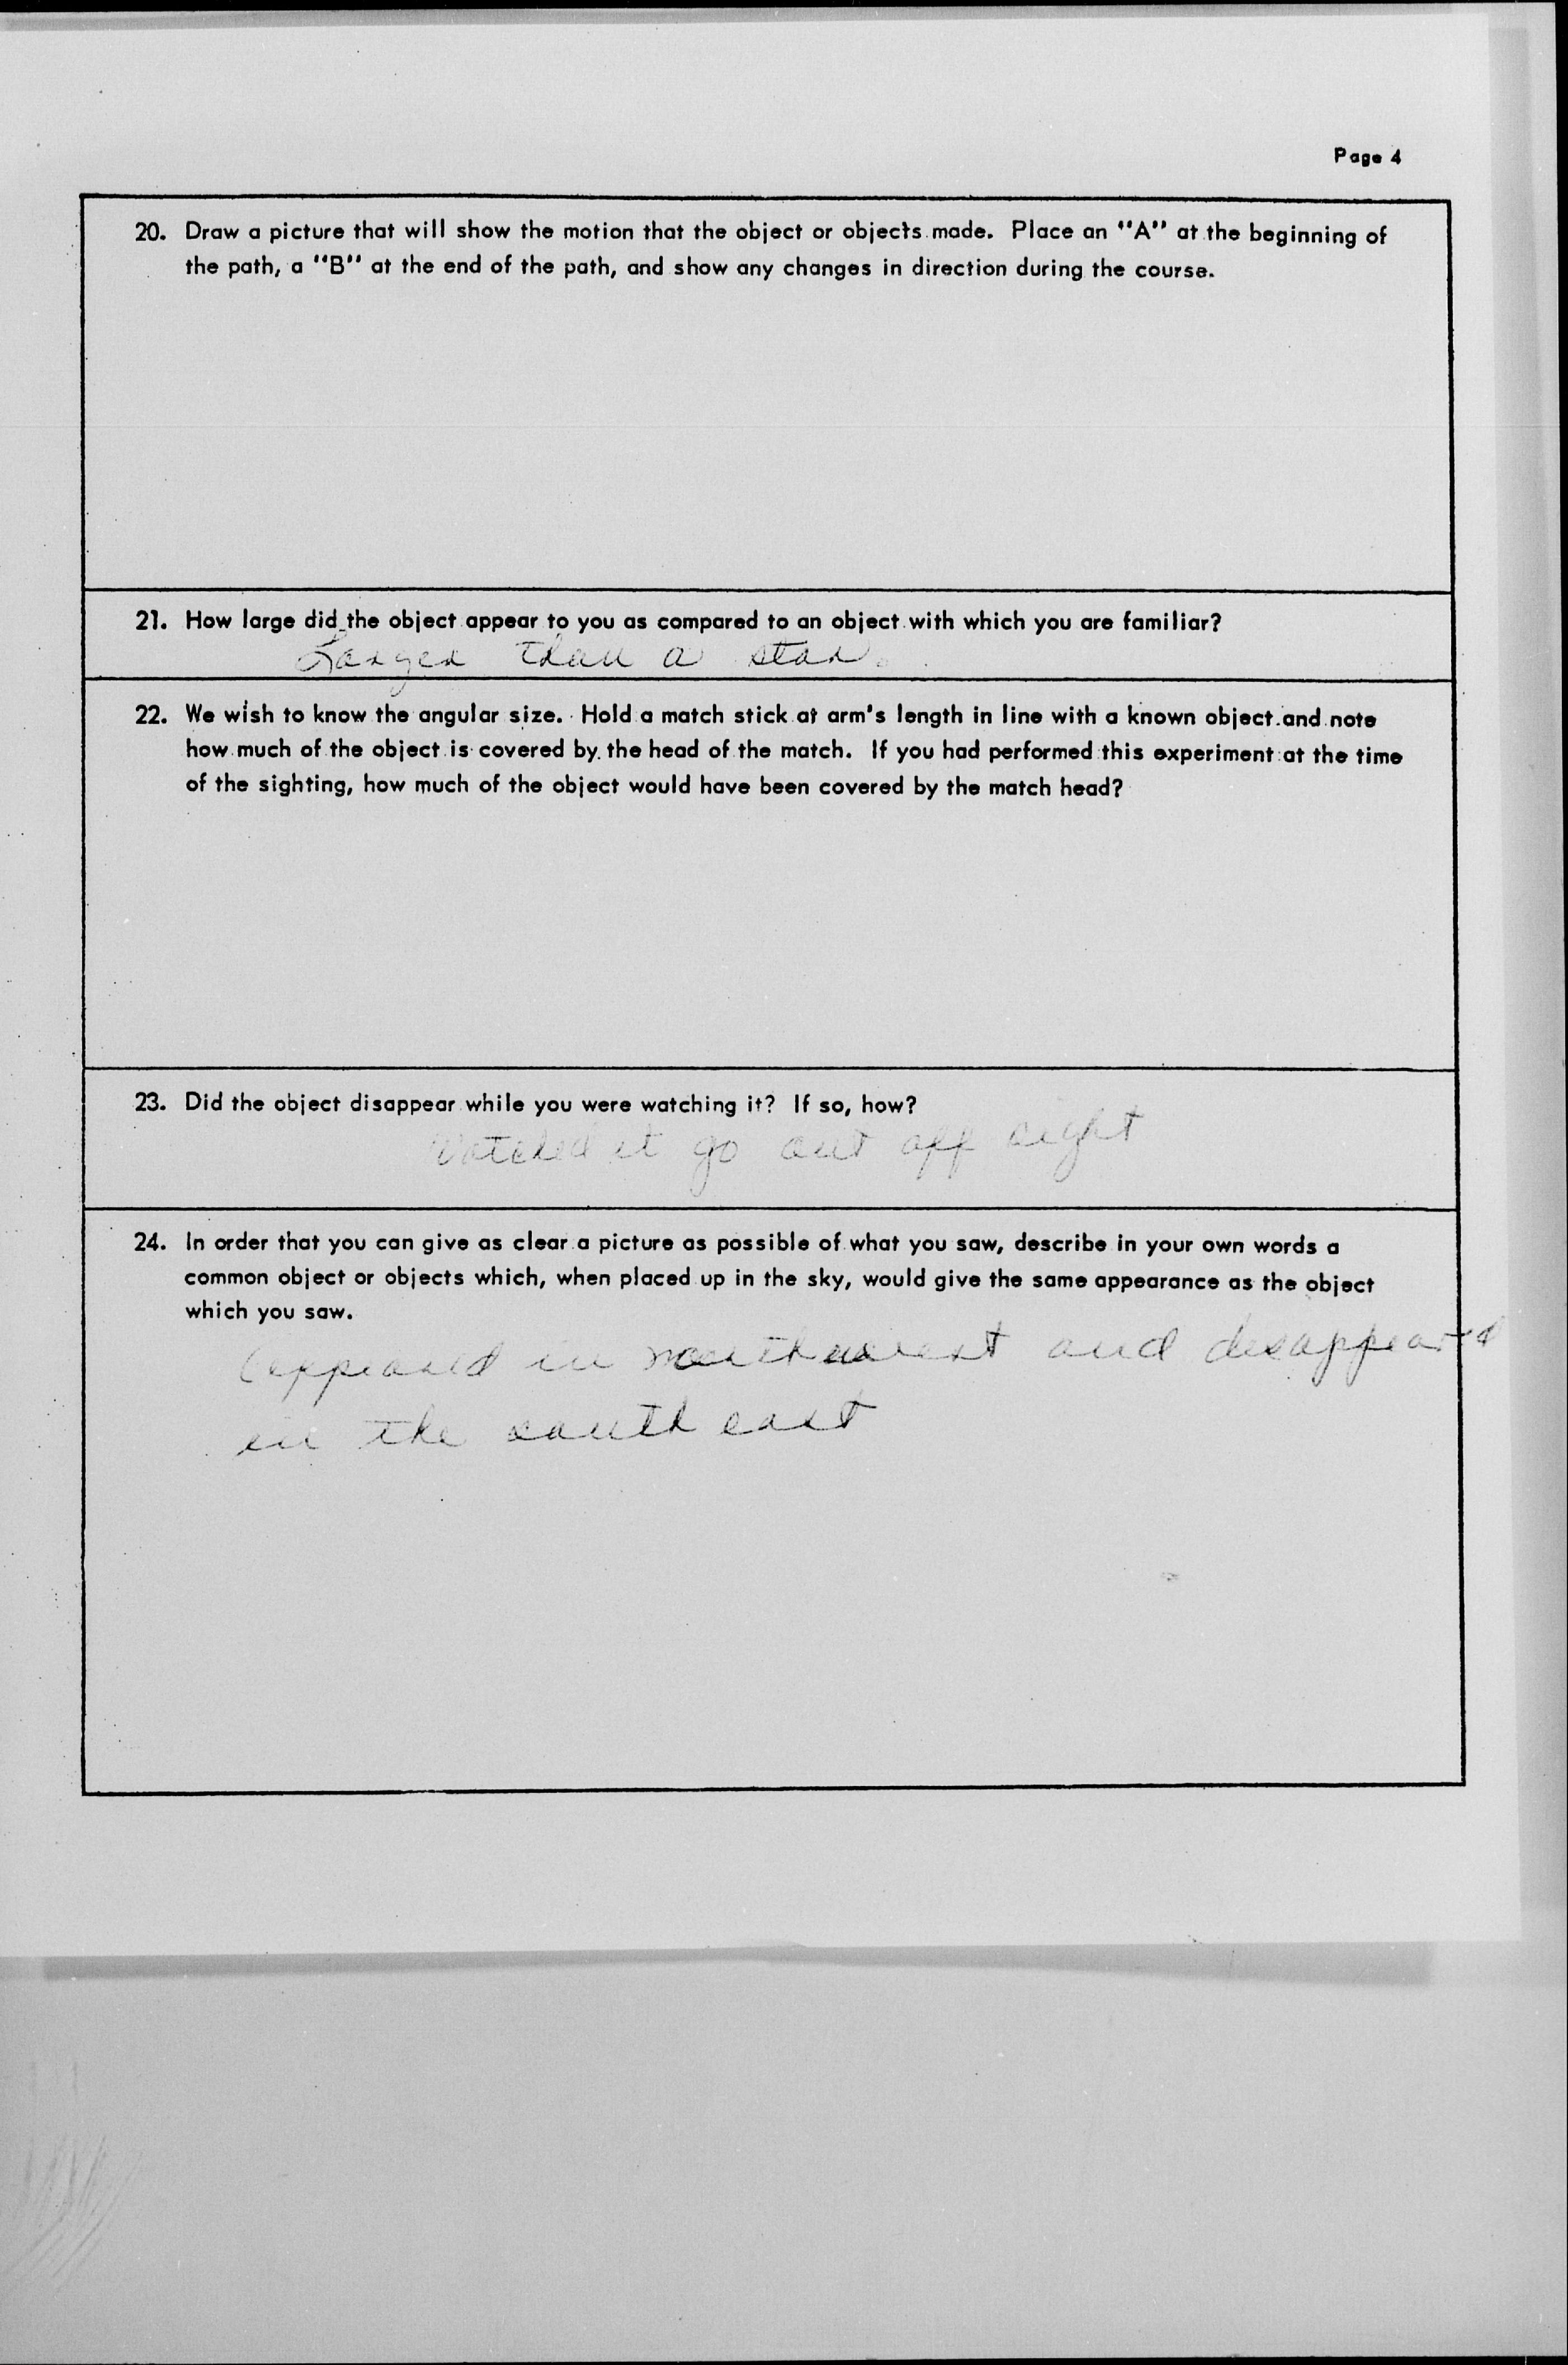 Page 4
20. Draw a picture that will show the motion that the object or objects made. Place an "A" at the beginning of
the path, a "B" at the end of the path, and show any changes in direction during the course.
21. How large did the object appear to you as compared to an object with which you are familiar?
Larger than a star.
22. We wish to know the angular size. Hold a match stick at arm's length in line with a known object and note
how much of the object is covered by the head of the match. If you had performed this experiment at the time
of the sighting, how much of the object would have been covered by the match head?
23. Did the object disappear while you were watching it? If so, how?
Watched it go out off sight
24. In order that you can give as clear a picture as possible of what you saw, describe in your own words a
common object or objects which, when placed up in the sky, would give the same appearance as the object
which you saw.
appeared in and disappeared
in the south east